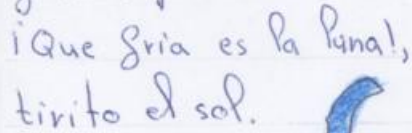 ¡Que fria es la luna!,
tirito el sol.